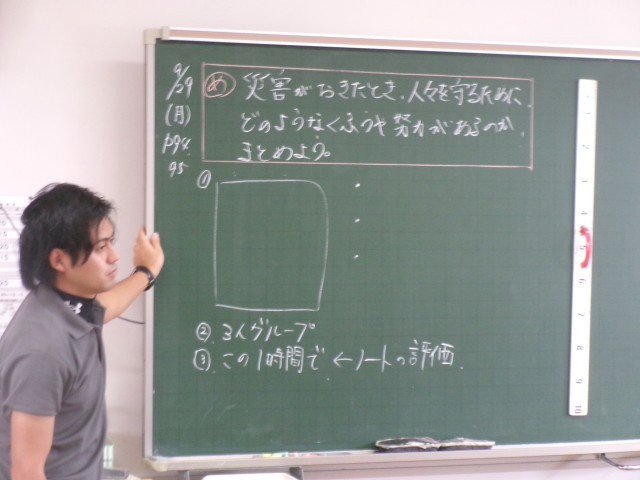 9/29
(月)
P94.
95
め 災害がおきたとき、人々を守るために、
どのようなくふうや努力があるのか、
まとめよう。
①
② 3人グループ
③ この1時間で ←ノートの評価.
1
2
3
4
5
6
7
8
9
10